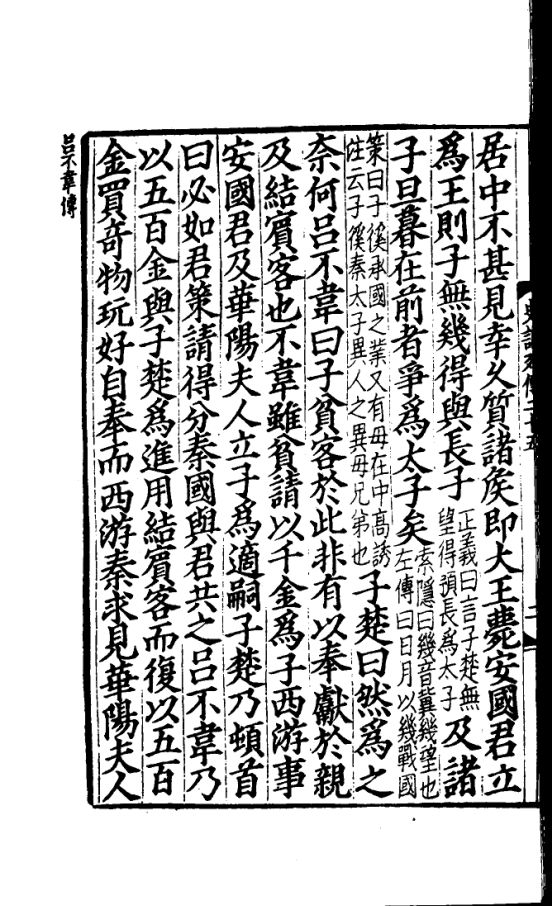 居中不甚見幸久質諸侯即大王薨安國君立
為王則子無幾得與長子
正義曰言子楚無
望得預長為太子
及諸
子旦暮在前者爭為太子矣
索隱曰幾音冀幾望也
左傳曰日月以幾戰國
策曰子傒承國之業又有母在中高誘
注云子傒秦太子異人之異母兄弟也
子楚曰然為之
奈何呂不韋曰子貧客於此非有以奉獻於親
及結賓客也不韋雖貧請以千金為子西游事
安國君及華陽夫人立子為適嗣子楚乃頓首
曰必如君策請得分秦國與君共之呂不韋乃
以五百金與子楚為進用結賓客而復以五百
金買奇物玩好自奉而西游秦求見華陽夫人
呂不韋傳